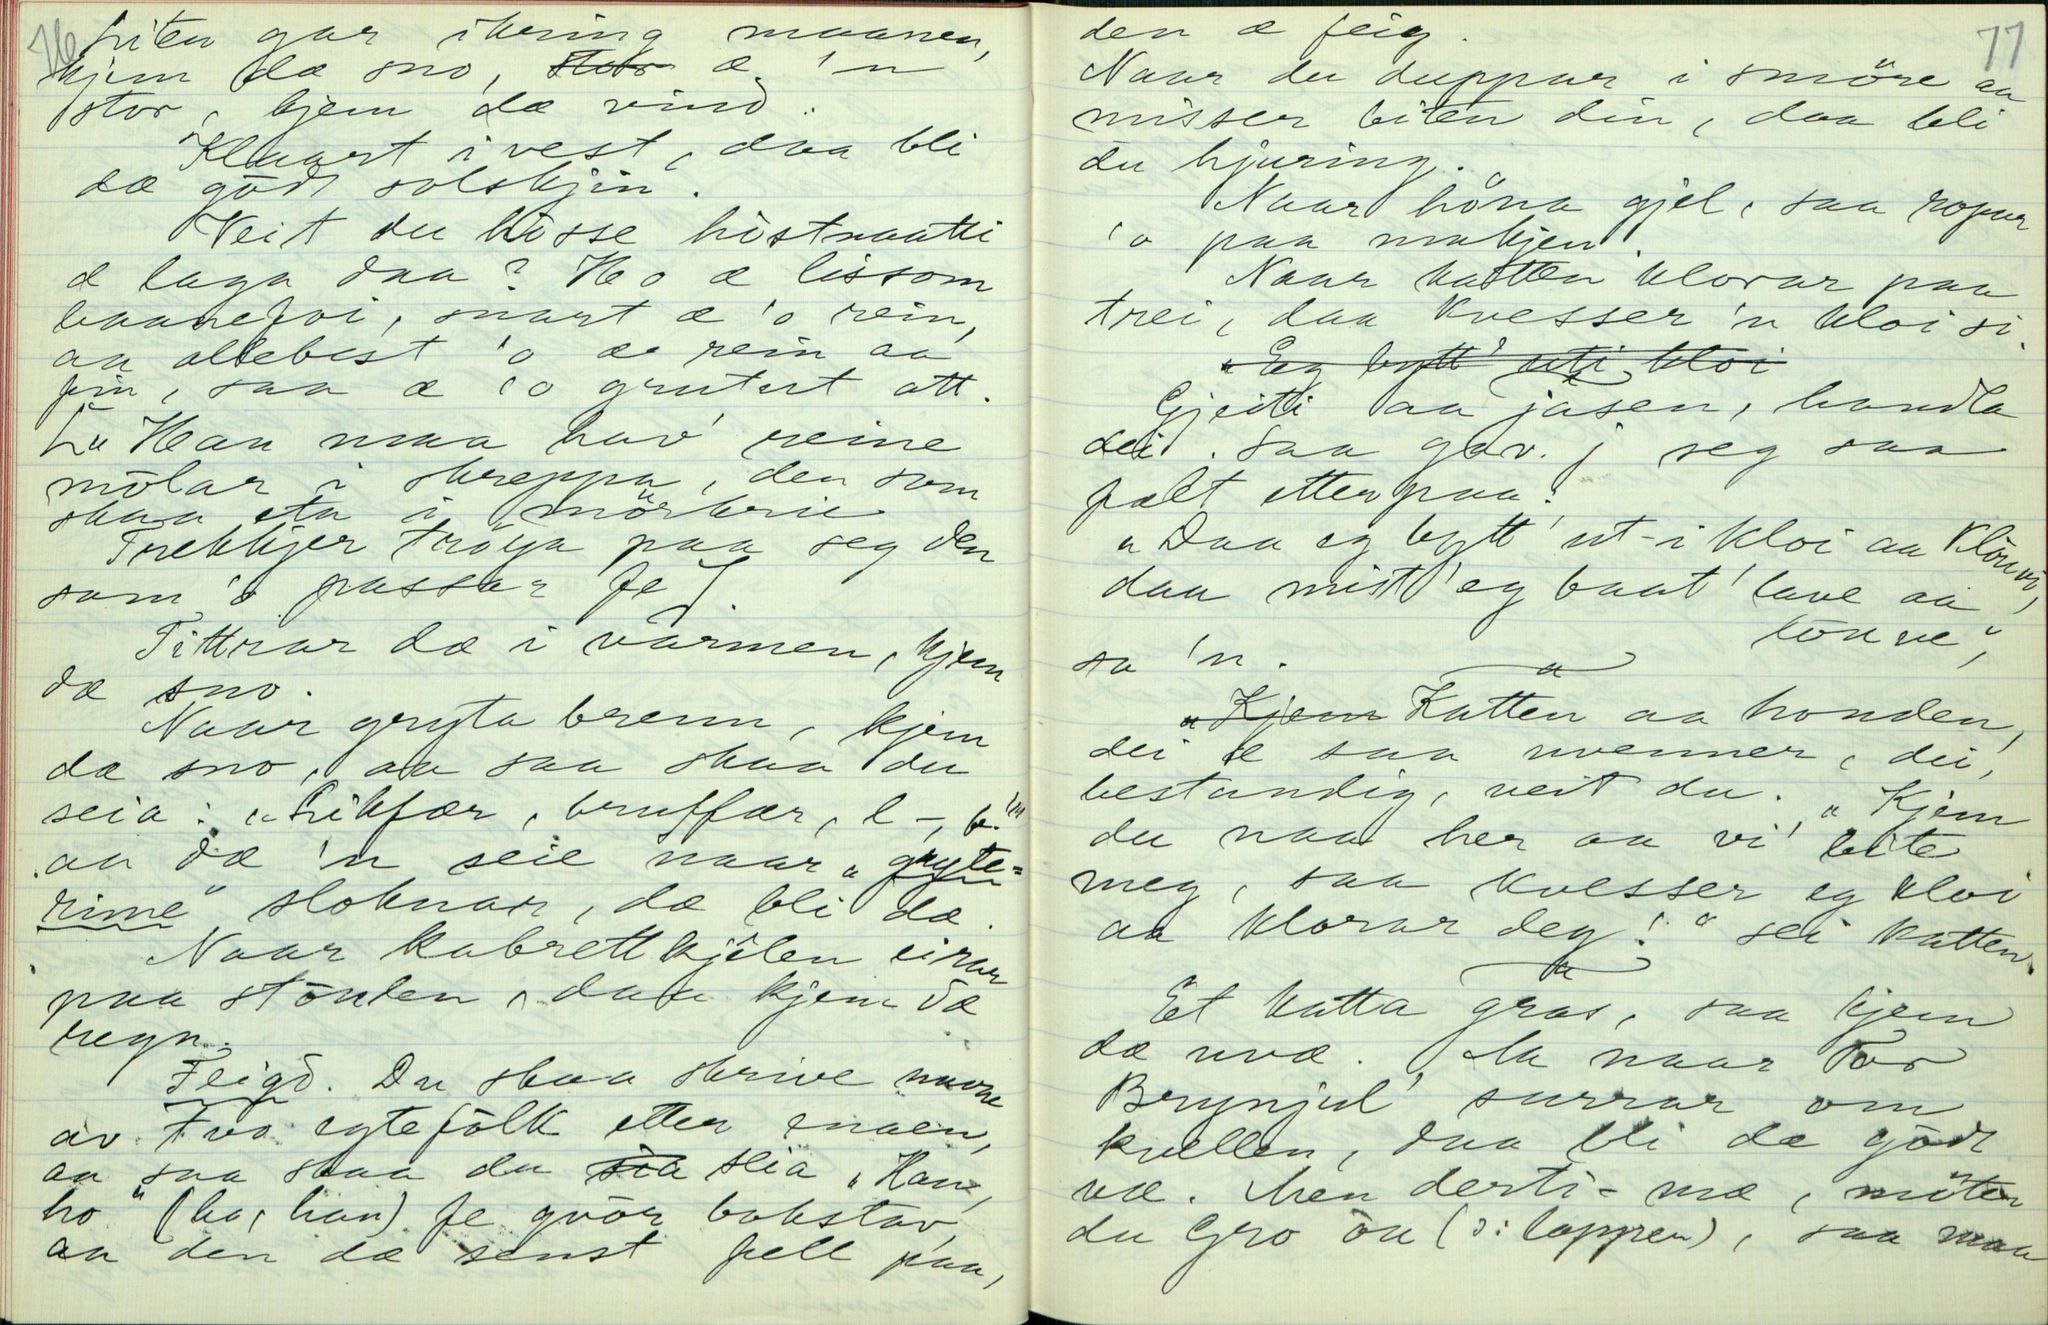 76
Liten gar ikring maanen,
kjem dæ sno, stor æ 'n
stor, kjem dæ vind.
Klaart i vest, daa bli
dæ godt solskjin.
Veit du hosse høstnaatti
æ laga daa? Ho æ lissom
baanefoi, snart æ 'o rein,
aa allebest 'o æ rein aa
fin, saa æ 'o grutut att.
"Han maa hav' reine
molar i skreppa, den som
skaa eta i mörkrie"
Trekkjer tröya paa seg den
som 'o passar fe.
Tittrar dæ i varmen, kjem
dæ sno.
Naar gryta brenn, kjem
dæ sno, aa saa skaa du
seia: "Likfær, bruffær, l-, b-!"
aa dæ 'n seie naar "gryte-
rime" sloknar, dæ bli dæ.
Naar kabrettkjilen eirar
paa stoulen, daa kjem dæ
regn.
Feigd. Du skaa skrive navne
av två egtefolk etter enaen,
aa saa skaa du sia seia "Han,
ho" (ho, han) fe qvor bokstav,
aa den dæ senst fell paa,
77
den æ feig.
Naar du duppar i smöre aa
misser biten din, daa bli
du hjuring.
Naar höna gjel, saa ropar
'o paa mukjen.
Naar katten klorar paa
trei, daa kvesser 'n kloi si.
"Eg bytt' uti kloi
Gjeiti aa jasen, handla
dei. Saa gav j seg saa
fælt etterpaa:
"Daa eg bytt' ut-i kloi aa klouvi,
daa mist' eg baat' lave aa
louve",
sa 'n.
"Kjem Katten aa honden,
dei æ saa uvenner, dei,
bestandig, veit du. "Kjem
du naa her aa vi' bite
meg, saa kvesser eg kloi
aa klorar deg!" sei katten.
Et katta gras, saa kjem
dæ uvæ. Aa naar Tor
Brynjul' surrar om
kvellen, daa bli dæ godt
væ. Men derti-mæ, möter
du Gro ou (ɔ: loppen), saa maa